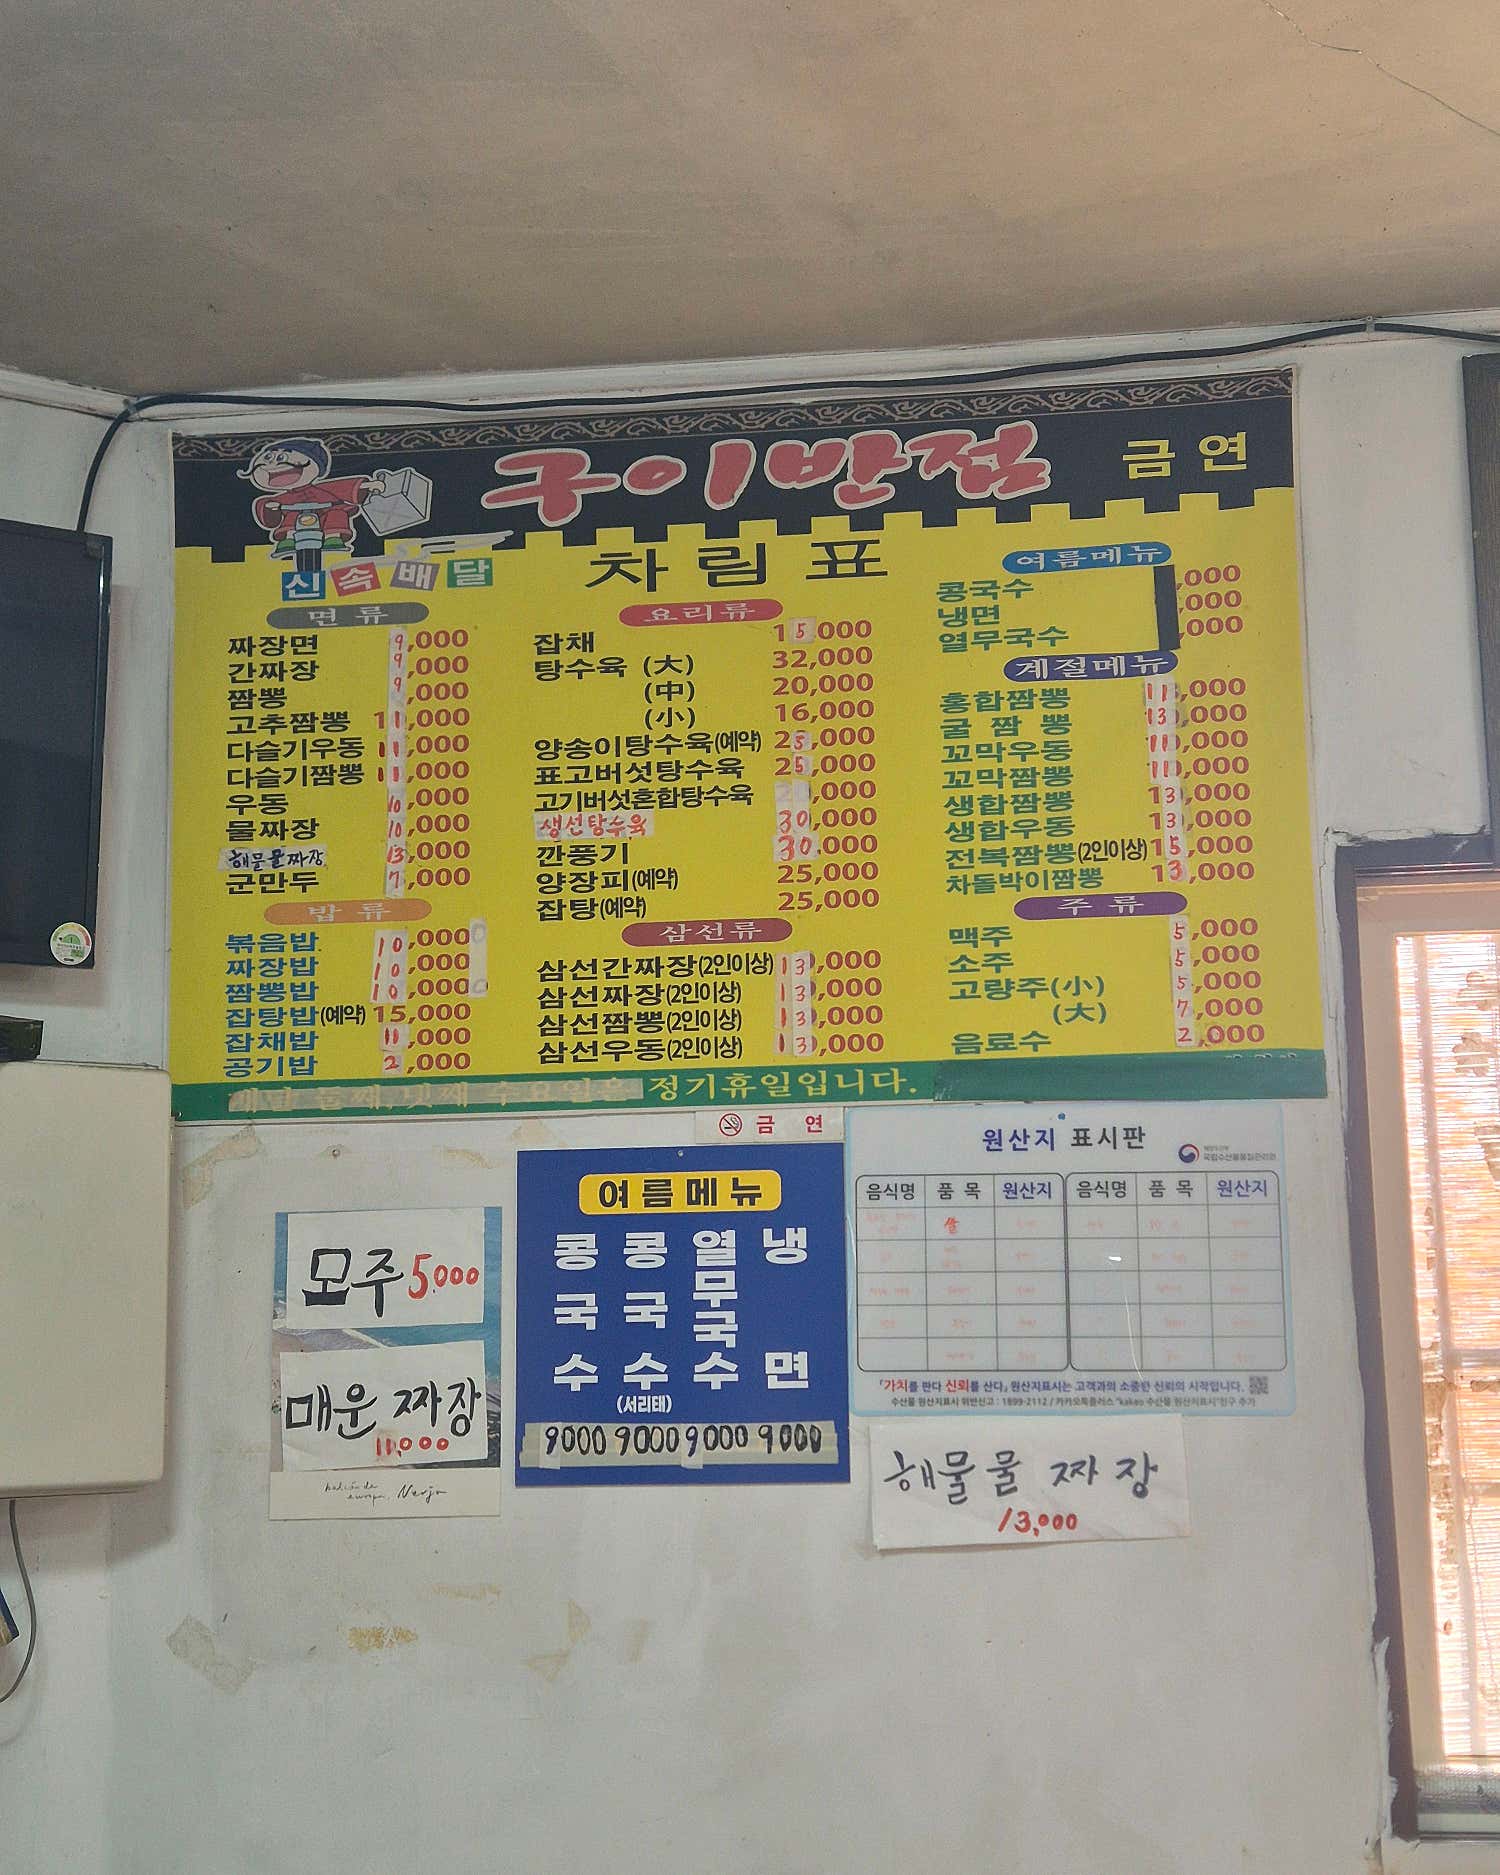 구이반점
금연
신속배달
차림표
면류
짜장면 9,000
간짜장 9,000
짬뽕 9,000
고추짬뽕 11,000
다슬기우동 11,000
다슬기짬뽕 11,000
우동 10,000
물짜장 10,000
해물물짜장 13,000
군만두 7,000
밥류
볶음밥 10,000
짜장밥 10,000
짬뽕밥 10,000
잡탕밥(예약) 15,000
잡채밥 11,000
공기밥 2,000
요리류
잡채 15,000
탕수육 (大) 32,000
(中) 20,000
(小) 16,000
양송이탕수육(예약) 25,000
표고버섯탕수육 25,000
고기버섯혼합탕수육 ,000
생선탕수육 30,000
깐풍기 30,000
양장피(예약) 25,000
잡탕(예약) 25,000
삼선류
삼선간짜장(2인이상) 13,000
삼선짜장(2인이상) 13,000
삼선짬뽕(2인이상) 13,000
삼선우동(2인이상) 13,000
여름메뉴
콩국수 ,000
냉면 ,000
열무국수 ,000
계절메뉴
홍합짬뽕 11,000
굴짬뽕 13,000
꼬막우동 11,000
꼬막짬뽕 11,000
생합짬뽕 13,000
생합우동 13,000
전복짬뽕(2인이상) 15,000
차돌박이짬뽕 13,000
주류
맥주 5,000
소주 5,000
고량주(小) 5,000
(大) 7,000
음료수 2,000
매달 둘째,넷째 수요일은 정기휴일입니다.
금 연
모주 5,000
매운 짜장
11,000
Nerja
여름메뉴
콩국수 9000
콩국수 (서리태) 9000
열무국수 9000
냉면 9000
원산지 표시판
국립수산물품질관리원
음식명 품 목 원산지 음식명 품 목 원산지
쌀
「가치를 판다 신뢰를 산다」 원산지표시는 고객과의 소중한 신뢰의 시작입니다.
수산물 원산지표시 위반신고 : 1899-2112 / 카카오톡플러스 "kakao 수산물 원산지표시"친구 추가
해물물 짜장
13,000